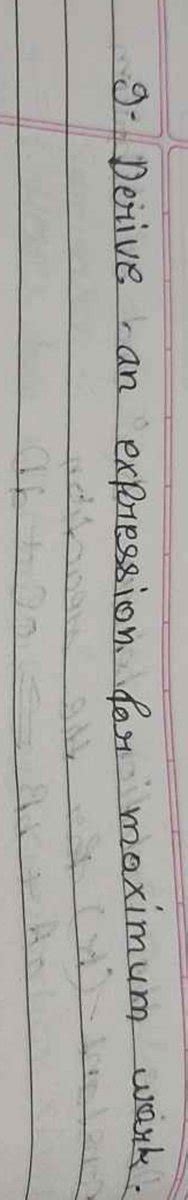 9. Derive an expression for maximum work.